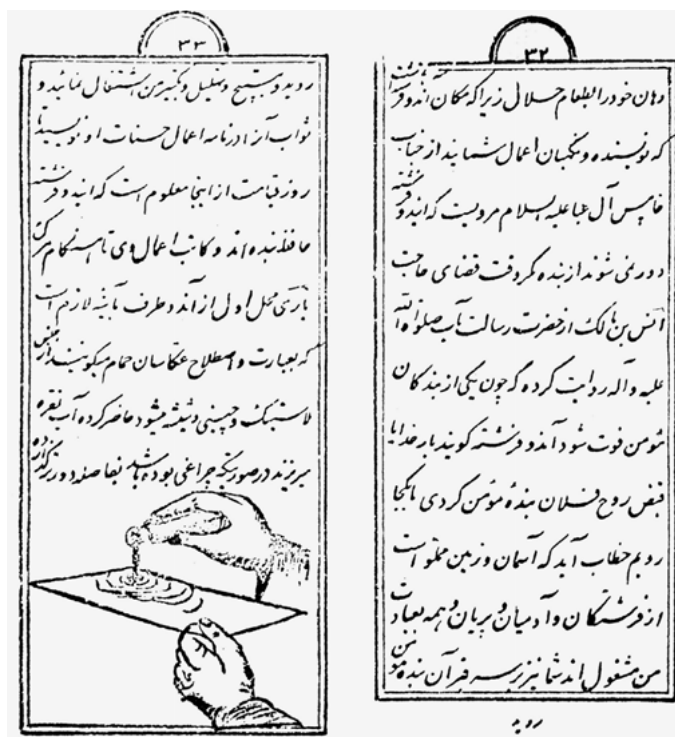 ۳۲
دهان خود را بطعام حلال زیرا که مکان اند و فرشته
که نویسنده و نگهبان اعمال شمایند از جناب
خامس آل عبا علیه السلام مرویست که اند و فرشته
دور نمی شوند از بنده مگر وقت قضای حاجت
انس بن مالک از حضرت رسالت مآب صلوة الله
علیه و آله روایت کرده که چون یکی از بندگان
مؤمن فوت شود آندو فرشته گویند بار خدایا
قبض روح فلان بنده مؤمن کردی بکجا
رویم خطاب آید که آسمان و زمین مملو است
از فرشتگان و آدمیان و پریان و همه بعبادت
من مشغول اند شما نیز بر سر قبر آن بنده مؤمن
روید
۳۳
روید و بتسبیح و تهلیل و تکبیر من اشتغال نمائید و
ثواب آنرا در نامه اعمال حسنات او نویسید تا
روز قیامت از اینجا معلوم است که اند و فرشته
حافظ بنده اند و کاتب اعمال وی تا هنگام مرگ
باری محل اول از آن دو ظرف لازم است
که بعبارت و اصطلاح عکاسان حمام میگویند از جنس
لاستیک و چینی و شیشه میشود حاضر کرده آب نقره
میریزند در صورتیکه چراغی بوده باشد بفاصله دور گذارده